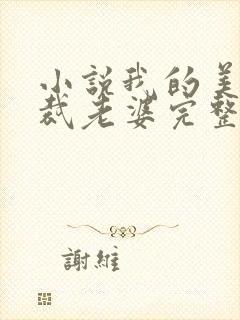 小說我的美
裁老婆完整
謝維